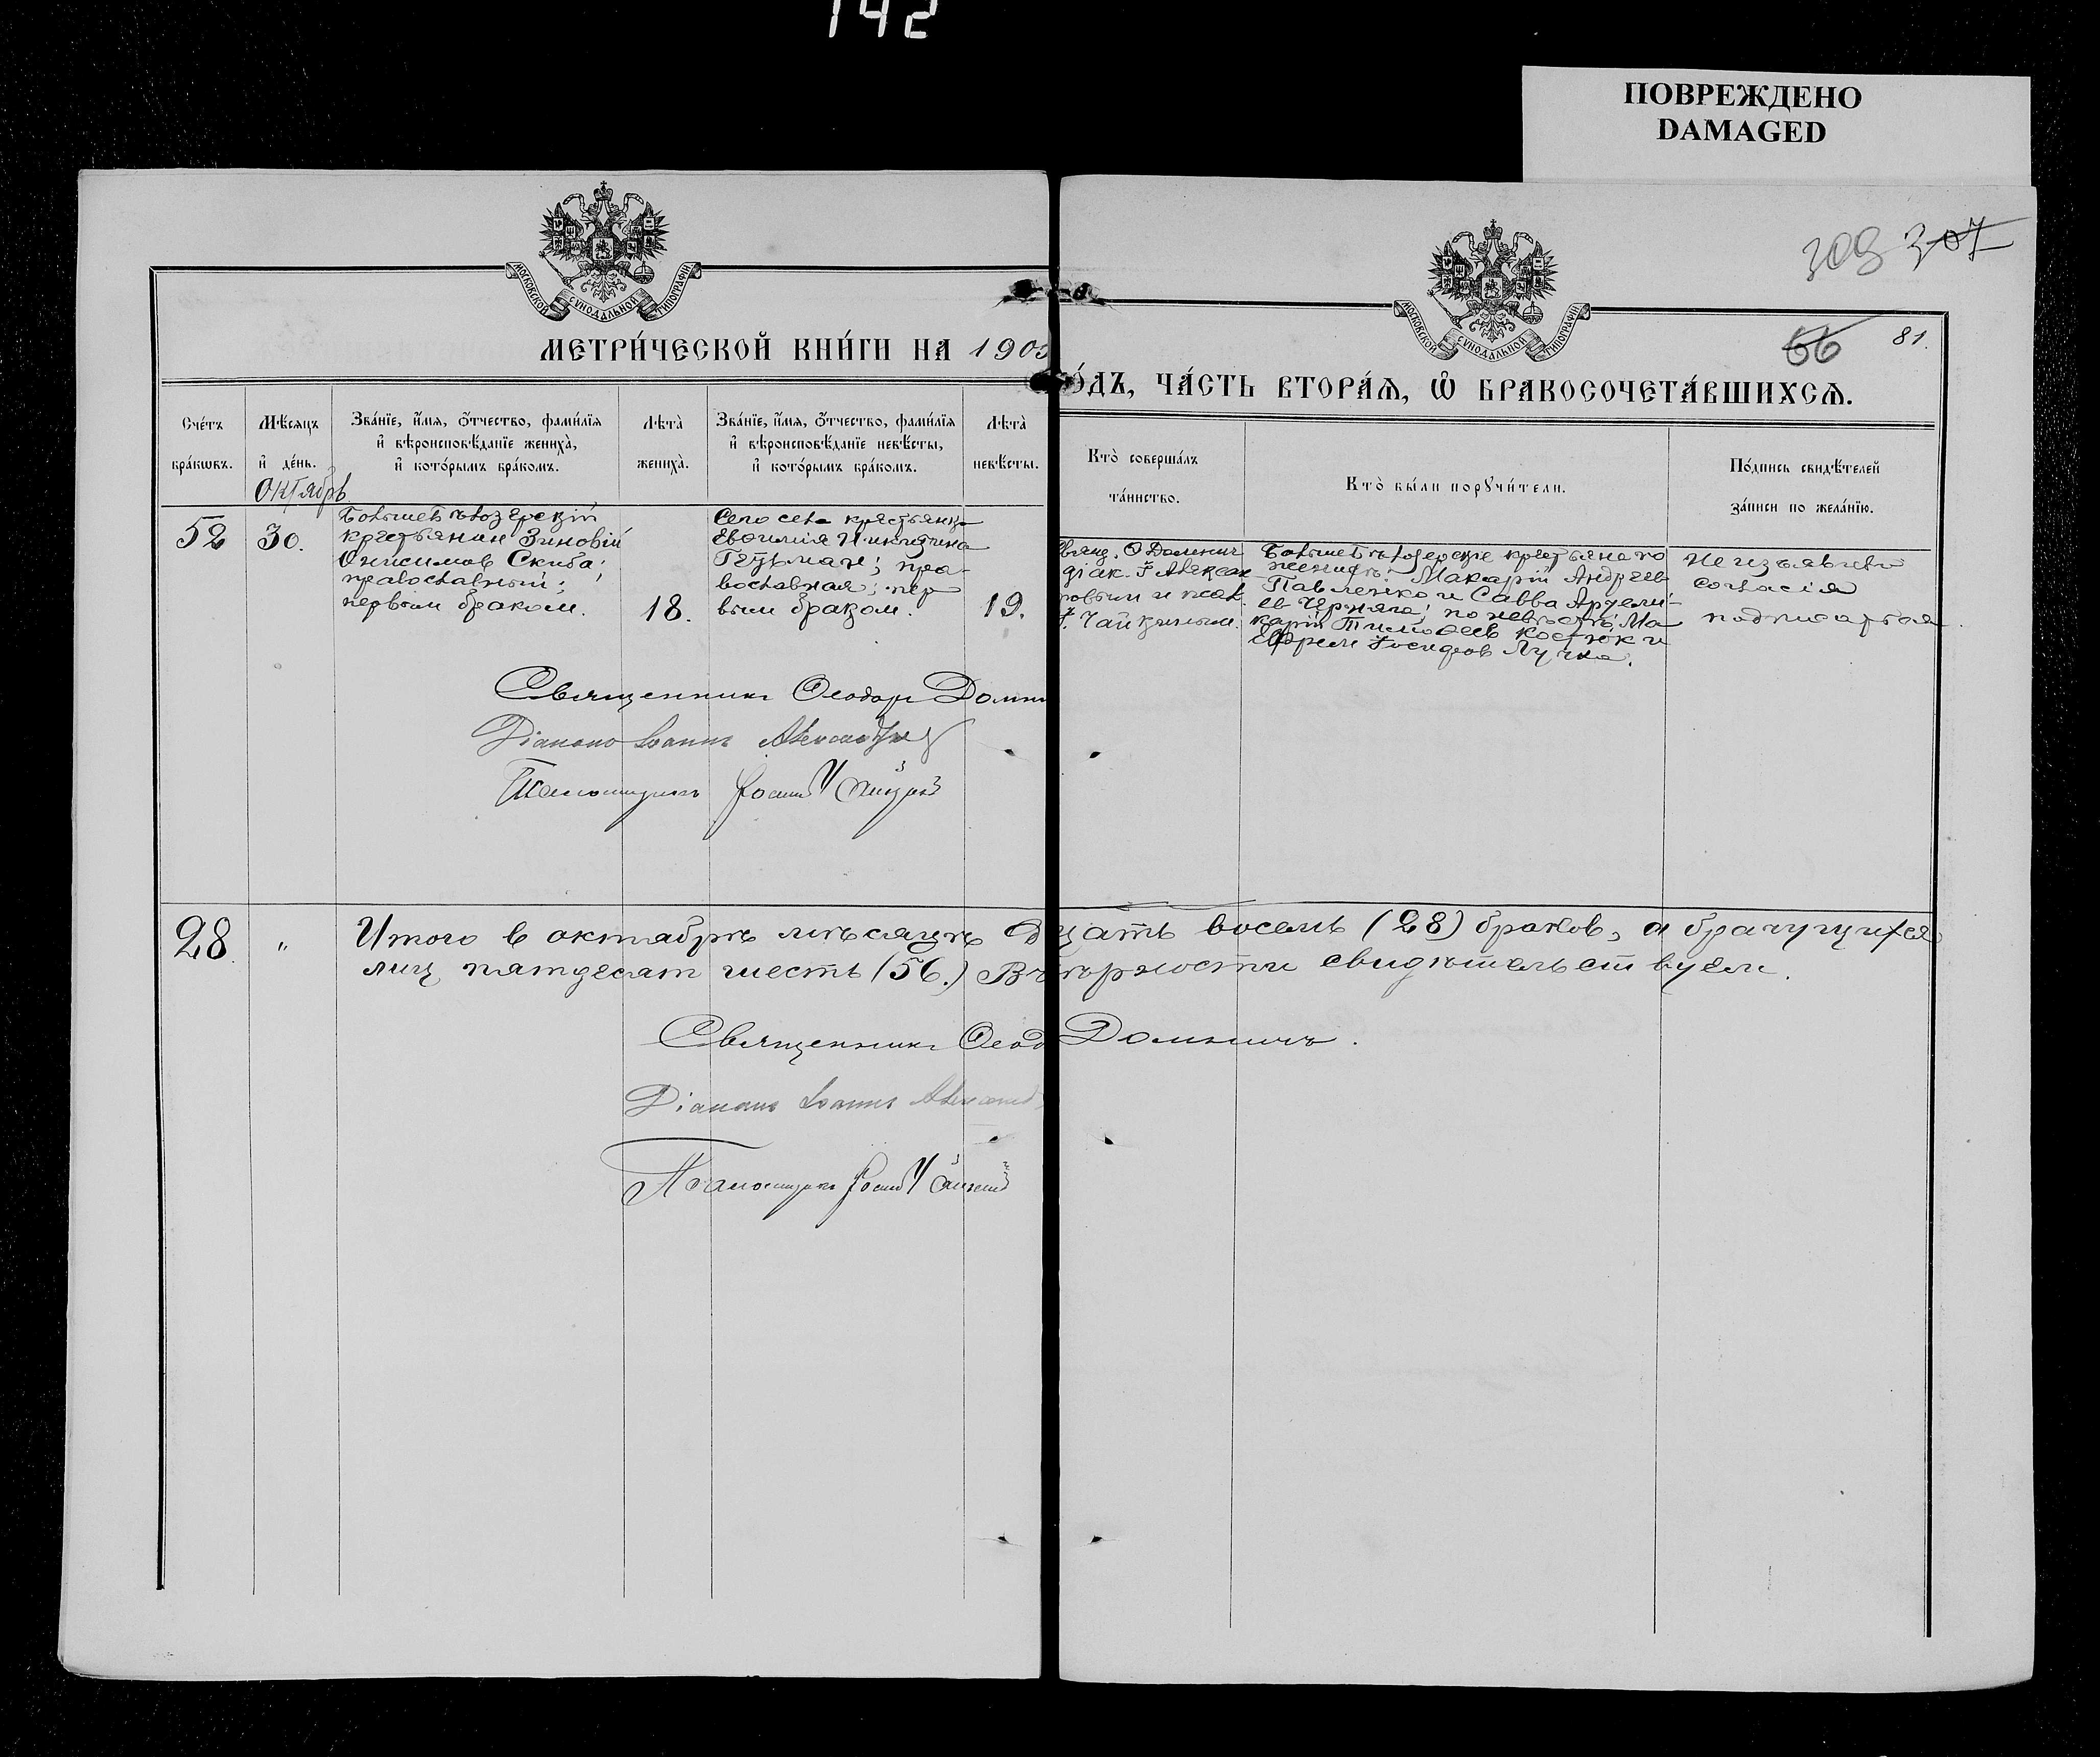 142
ПОВРЕЖДЕНО
DAMAGED
МОСКОВСКОЙ СѴНОДАЛЬНОЙ ТИПОГРАФІИ
МОСКОВСКОЙ СѴНОДАЛЬНОЙ ТИПОГРАФІИ
308 307
66 81.
МЕТРИ́ЧЕСКОЙ КНИ́ГИ НА 190
О́ДЪ, ЧА́СТЬ ВТОРА́Ѧ, Ѽ БРАКОСОЧЕТА́ВШИХСѦ.
Счетъ
бра́кѡвъ.
Мѣ́сяцъ
и҆ де́нь.
Октябрь
Зва́нїе, и҆́мя, ѻ҆́тчество, фами́лїя
и҆ вѣроисповѣ́данїе жениха̀,
и҆ кото́рымъ бра́комъ.
Лѣта̀
жениха̀.
Зва́нїе, и҆́мя, ѻ҆́тчество, фами́лїя
и҆ вѣроисповѣ́данїе невѣ́сты,
и҆ кото́рымъ бра́комъ.
Лѣта̀
невѣ́сты.
Кто̀ соверша́лъ
та́инство.
Кто̀ бы́ли порꙋчи́тели.
По́дпись свидѣ́телей
за́писи по жела́нїю.
52
30.
Большебѣлозерскій
крестьянин Зиновій
Онисимов Скиба;
православный;
первым браком.
18.
Сего села крестьянка
Евфимія Никитина
Гетьман; пра-
вославная; пер
вым браком.
19.
Свящ. Ѳ Домнич
діак. І Алексан
ровым и псал.
І. Чайкиным.
Большебѣлозерскіе крестьяне по
женихѣ: Макарій Андреев
Павленко и Савва
ев Черняга; по невѣстѣ: Ма
карій Тимофеев Костюк и
Ефрем Іосифов Лучка.
Не изъявили
согласія
подписаться.
Священникъ Ѳеодоръ Домни
Діаконъ Іоаннъ
Псаломщикъ
28.
"
Итого в октябрѣ мѣсяцѣ двадцать восемь (28) браков, а брачущихся
лиц пятдесят шесть (56.) Вѣрности свидѣтельствуем.
Священникъ Ѳеод Домничъ.
Діаконъ Іоаннъ
Псаломщикъ